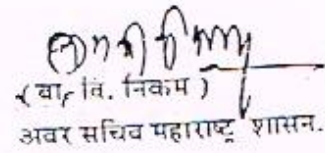 (वा. वि. निकम)
अवर सचिव महाराष्ट्र शासन.